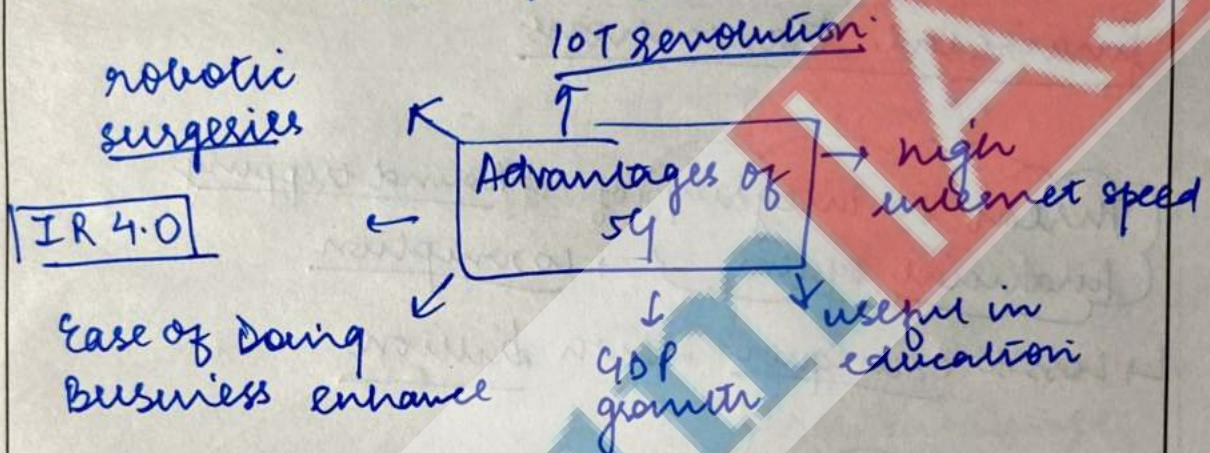 IOT revolution
robotic
surgeries
Advantages of
5G
→ high
internet speed
IR 4.0
Ease of Doing
Business enhance
GDP
growth
useful in
education